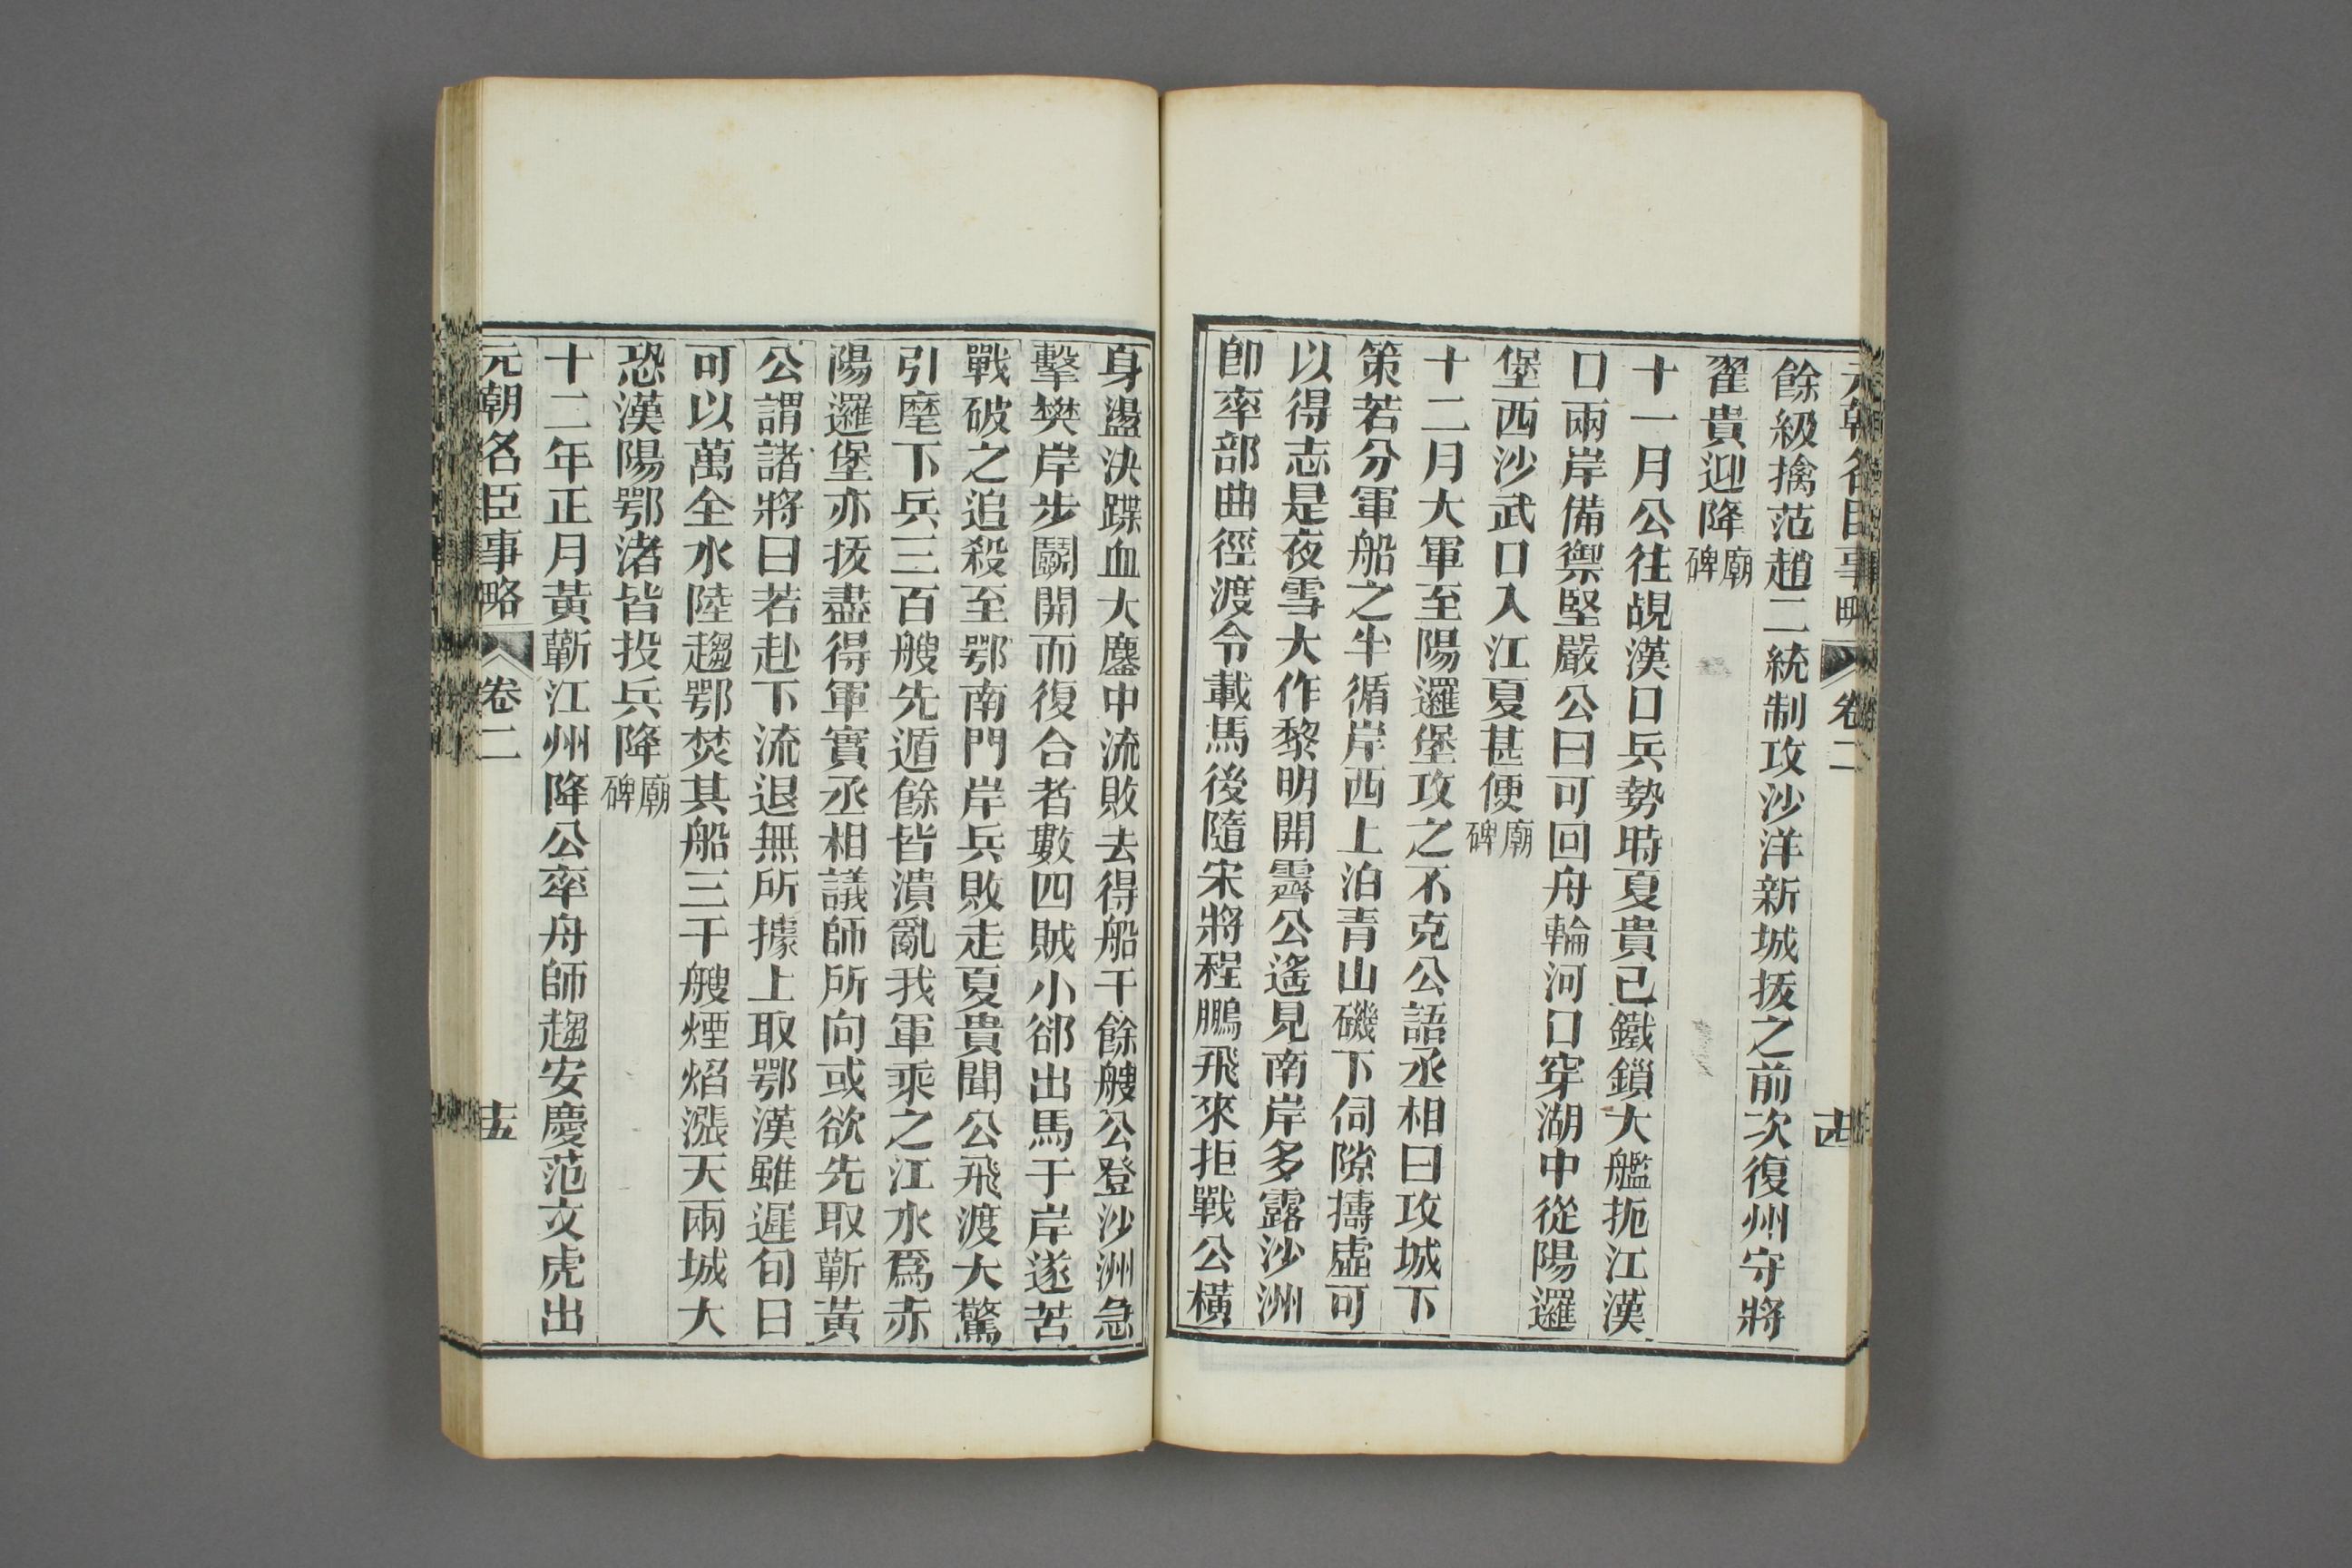 元朝名臣事略 卷二 十四
餘級擒范趙二統制攻沙洋新城拔之前次復州守將
翟貴迎降廟碑
十一月公往覘漢口兵勢時夏貴已鐵鎖大艦扼江漢
口兩岸備禦堅嚴公曰可回舟輪河口穿湖中從陽邏
堡西沙武口入江夏甚便廟碑
十二月大軍至陽邏堡攻之不克公語丞相曰攻城下
策若分軍船之半循岸西上泊青山磯下伺隙擣虛可
以得志是夜雪大作黎明開霽公遙見南岸多露沙洲
卽率部曲徑渡令載馬後隨宋將程鵬飛來拒戰公橫
身盪決蹀血大鏖中流敗去得船千餘艘公登沙洲急
擊樊岸步鬭開而復合者數四賊小郤出馬于岸遂苦
戰破之追殺至鄂南門岸兵敗走夏貴聞公飛渡大驚
引麾下兵三百艘先遁餘皆潰亂我軍乘之江水爲赤
陽邏堡亦拔盡得軍實丞相議師所向或欲先取蘄黃
公謂諸將曰若赴下流退無所據上取鄂漢雖遲旬日
可以萬全水陸趨鄂焚其船三千艘煙焰漲天兩城大
恐漢陽鄂渚皆投兵降廟碑
十二年正月黃蘄江州降公率舟師趨安慶范文虎出
元朝名臣事略 卷二 十五